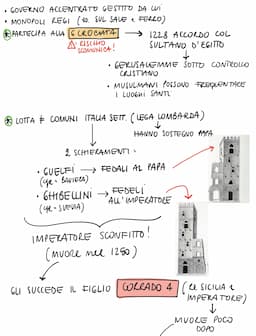 • GOVERNO ACCENTRATO GESTITO DA LUI
• MONOPOLI REGI (ES. SUL SALE E FERRO)
* PARTECIPA ALLA 6 CROCIATA → 1228 ACCORDO COL
⚠ RISCHIO SCOMUNICA! SULTANO D'EGITTO
• GERUSALEMME SOTTO CONTROLLO
CRISTIANO
• MUSULMANI POSSONO FREQUENTARE
I LUOGHI SANTI
* LOTTA ≠ COMUNI ITALIA SETT. (LEGA LOMBARDA)
HANNO SOSTEGNO PAPA
2 SCHIERAMENTI
• GUELFI → FEDALI AL PAPA
• GHIBELLINI → FEDELI
ALL'IMPERATORE
IMPERATORE SCONFITTO!
(MUORE NEL 1250)
GLI SUCCEDE IL FIGLIO CORRADO 4 (RE SICILIA e
IMPERATORE)
MUORE POCO
DOPO